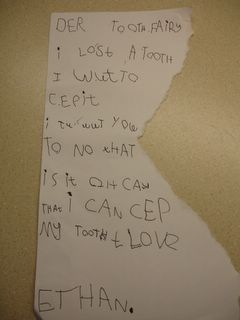 DER TOOTH FAIRY
i LOST A TOOTH
I WUT TO
CEPIT
i wut YOU
TO NO tHAT
is it OHCAY
THAT i CAN CEP
MY TOOTH LOVE
ETHAN.